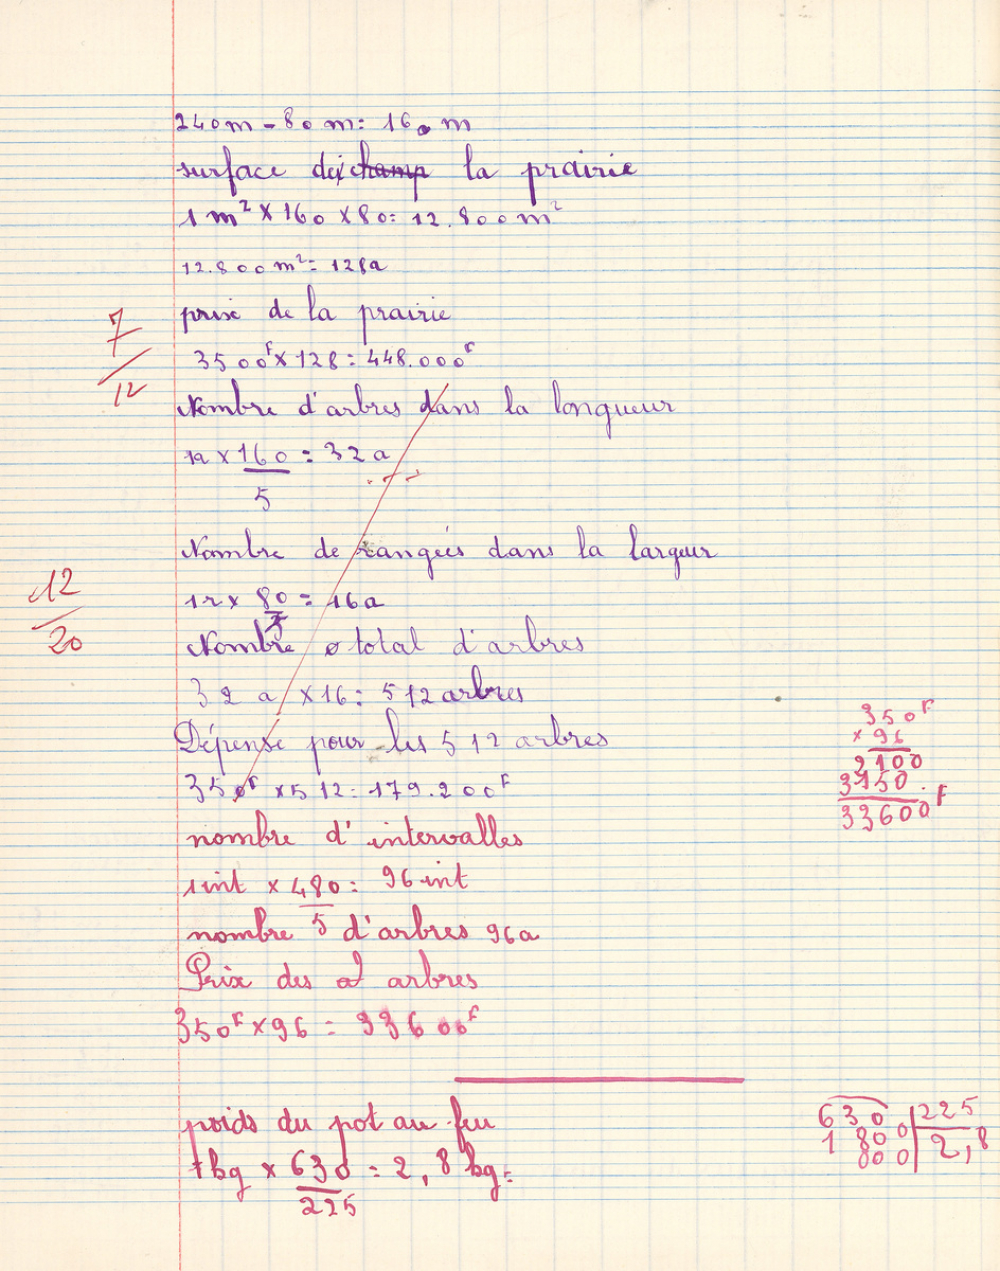 240m - 80m = 160 m
surface du champ la prairie
1 m² × 160 × 80 = 12.800 m²
12.800 m² = 128a
prix de la prairie
3500F × 128 = 448.000F
7
12
Nombre d'arbres dans la longueur
1a × 160 = 32 a
5
Nombre de rangées dans la largeur
12
20
1r × 80 = 16a
5
Nombre total d'arbres
32 a × 16 = 512 arbres
Dépense pour les 512 arbres
350F × 512 = 179.200F
350F
× 96
2100
3150.
33600F
nombre d'intervalles
1int × 480 = 96 int
5
nombre d'arbres 96a
Prix des arbres
350F × 96 = 33600F
poids du pot au feu
1kg × 630 = 2,8 kg
225
630 225
1 800 2,8
000